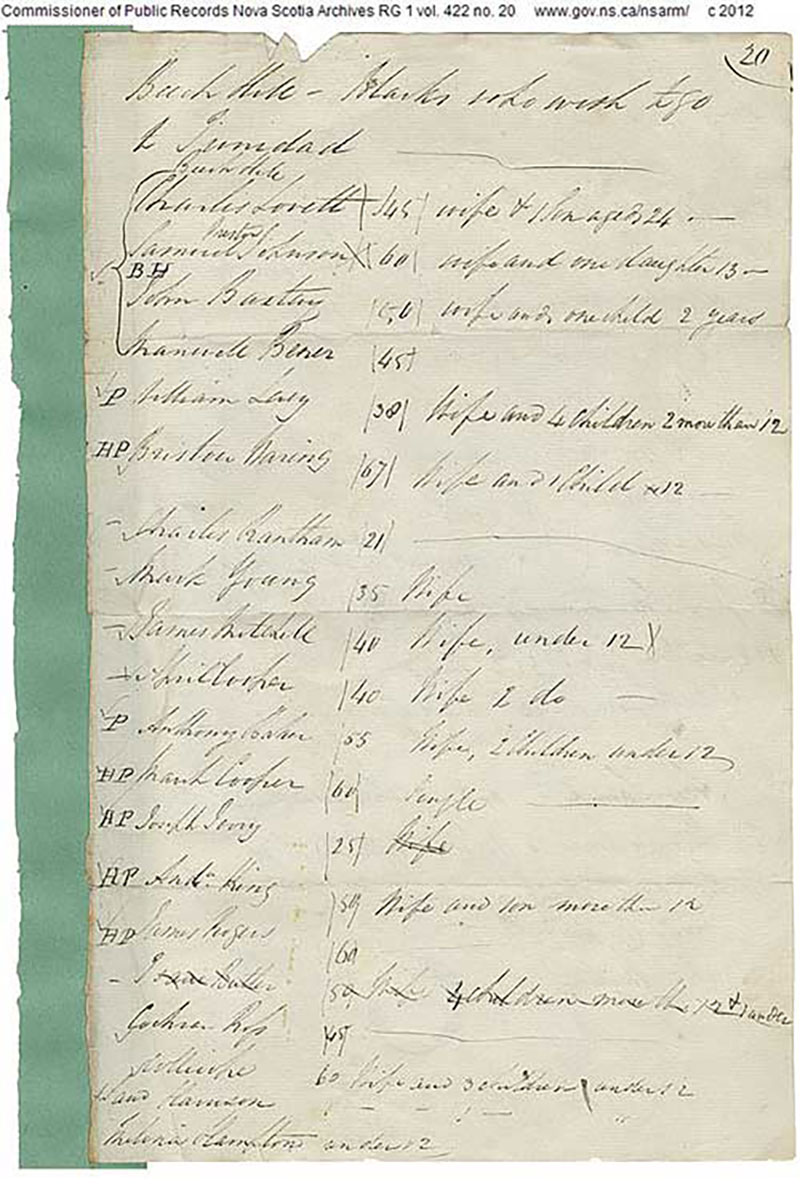 Commissioner of Public Records Nova Scotia Archives RG 1 vol. 422 no. 20 www.gov.ns.ca/nsarm/ c 2012
20
Beech Hill - Blacks who wish to go
to Trinidad
Beech Hill
Charles Lovett 45 wife & 1 son aged 24
Samuel Johnson 60 wife and one daughter 13
BH
John Baxter 50 wife and one child 2 years
45
P William 38 Wife and 4 children 2 more than 12
HP Bristow Waring 67 Wife and 1 Child 12
Charles Grantham 21
Mark Young 35 Wife
James Mitchell 40 Wife, under 12
April Cooper 40 Wife 2 do
P Anthony Baker 55 Wife, 2 Children under 12
HP Frank Cooper 60 Single
HP Joseph 25 Wife
HP King 59 Wife and son more than 12
HP James Rogers 60
Isaac Butler 50 Wife 4 children more than 12 & under
Ross 45
60 Wife and 3 children under 12
Harrison
Hampton under 12